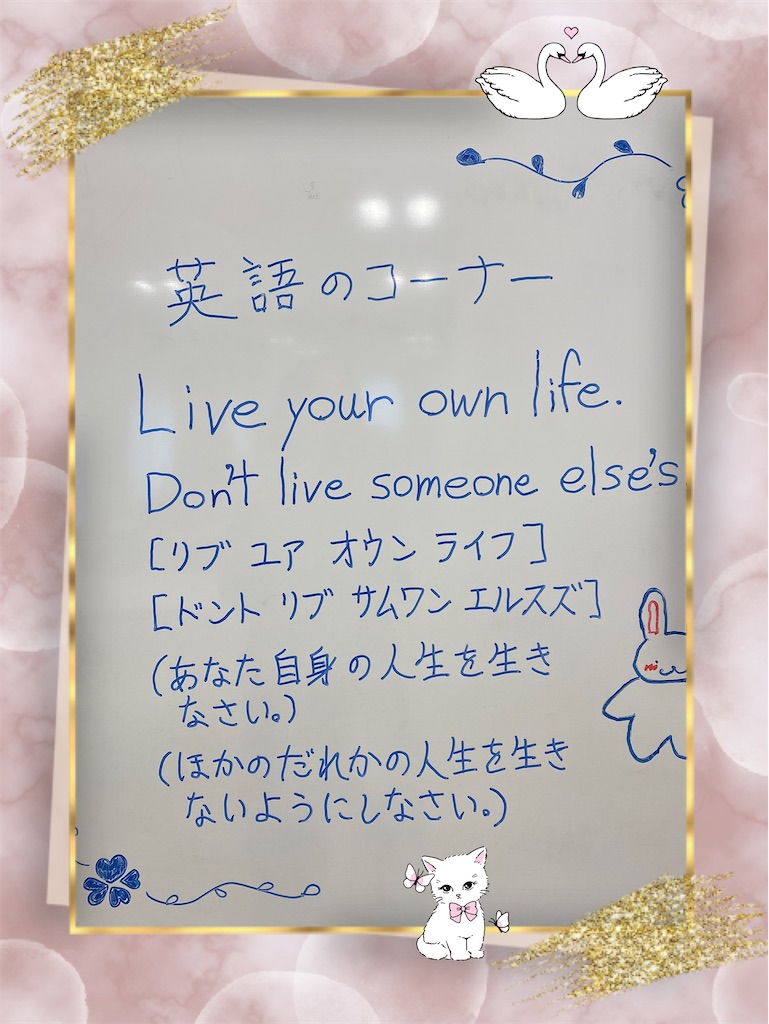 英語のコーナー
Live your own life.
Don't live someone else's
[リブ ユア オウン ライフ]
[ドント リブ サムワン エルスズ]
(あなた自身の人生を生き
なさい。)
(ほかのだれかの人生を生き
ないようにしなさい。)